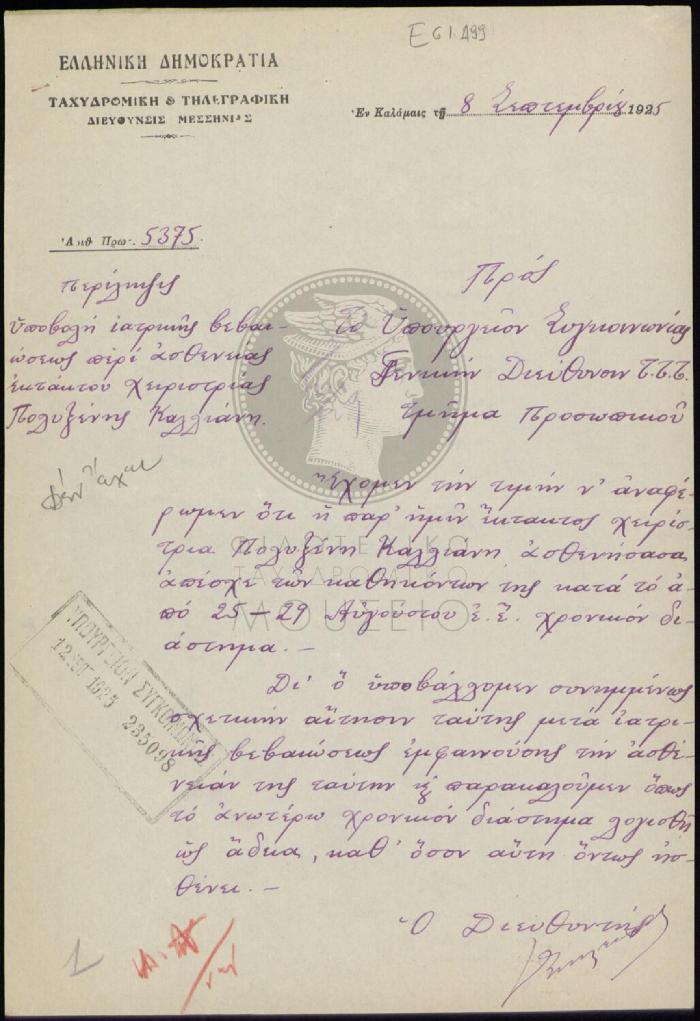 Ε61Α99
ΕΛΛΗΝΙΚΗ ΔΗΜΟΚΡΑΤΙΑ
ΤΑΧΥΔΡΟΜΙΚΗ & ΤΗΛΕΓΡΑΦΙΚΗ
ΔΙΕΥΘΥΝΣΙΣ ΜΕΣΣΗΝΙΑΣ
Ἐν Καλάμαις τῇ 8 Σεπτεμβρίου 1925
Ἀριθ Πρωτ. 5375.
Περίληψις
Ὑποβολή ἰατρικῆς βεβαι-
ώσεως περί ἀσθενείας
ἐκτάκτου χειριστρίας
Πολυξένης Καλλιάνη.
Πρός
Το Ὑπουργεῖον Συγκοινωνίας
Γενικήν Διεύθυνσιν Τ.Τ.Τ.
Τμῆμα Προσωπικοῦ
Ἔχομεν τήν τιμήν ν' ἀναφέ-
ρωμεν ὅτι ἡ παρ' ἡμῖν ἔκτακτος χειρίσ-
τρια Πολυξένη Καλλιάνη ἀσθενήσασα
ἀπέσχε τῶν καθηκόντων της κατά τό ἀ-
πό 25-29 Αὐγούστου ἐ.ἔ. χρονικόν δι-
άστημα.-
Δι' ὅ ὑποβάλλομεν συνημμένως
σχετικήν αἴτησιν ταύτης μετά ἰατρι-
κῆς βεβαιώσεως ἐμφαινούσης τήν ἀσθέ-
νειάν της ταύτην καί παρακαλοῦμεν ὅπως
τό ἀνωτέρω χρονικόν διάστημα λογισθῇ
ὡς ἄδεια, καθ' ὅσον αὕτη ὄντως ἠσ-
θένει.-
Ὁ Διευθυντής
ΥΠΟΥΡΓΕΙΟΝ ΣΥΓΚΟΙΝΩΝΙΑΣ
12 ΣΕΠ 1925 235098
ΦΙΛΟΤΕΛΙΚΟ
ΤΑΧΥΔΡΟΜΙΚΟ
ΜΟΥΣΕΙΟ
1